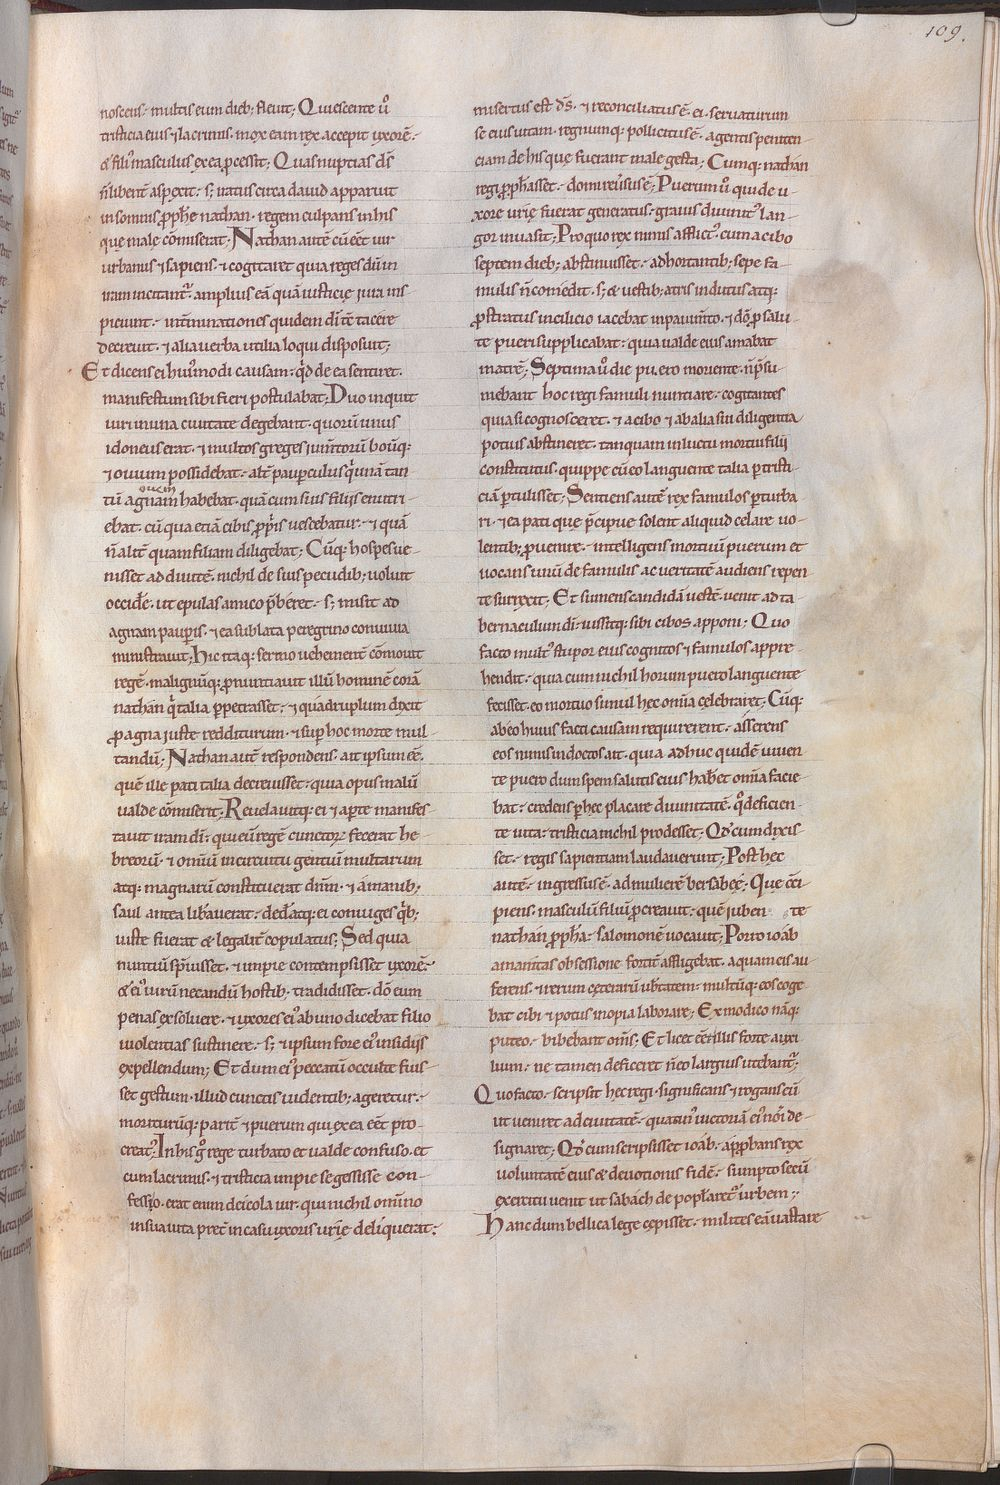 109.
noscens. multis eum dieb; fleuit; Quiescente u͛o
tristicia eius ⁊ lacrimis. mox eam rex accepit uxorē.
& fili᾽ masculus ex ea ꝓcessit; Quas nuptias ds̄
ñ libent̄ aspexit. s; iratus circa dauid apparuit
in somnis ꝓph̄e nathan. regem culpans in his
que male cōmiserat; Nathan autē cū eēt uir
urbanus ⁊ sapiens. ⁊ cogitaret quia reges dū in
iram incitant᾽. amplius eā quā iusticie iura ins-
piciunt. int̄minationes quidem di͛ tc̄ tacere
decreuit. ⁊ alia uerba utilia loqui disposuit;
Et dicens ei hui᾽modi causam. qd̄ de ea sentiret.
manifestum sibi fieri postulabat; Duo inquit
uiri in una ciuitate degebant. quorū unus
idoneus erat. ⁊ multos greges iumtorū bouūq:
⁊ ouium possidebat. alt̄ pauperculus q͛ unā tan
ouem
tū agnam habebat. quā cum suis filijs enutri-
ebat. cū qua etiā cibis ꝓp͛is uescebatur. ⁊ quā
ñ alit̄ quam filiam diligebat; Cūq: hospes ue-
nisset ad diuitē. nichil de suis pecudib; uoluit
occidē. ut epulas amico p̄beret. s; misit ad
agnam paupis. ⁊ ea sublata peregrino conuiuia
ministrauit; Hic itaq: sermo uehement̄ cōmouit
regē. malignūq: ꝓnuntiauit illū hominē corā
nathan q͛ talia ꝑpetrasset. ⁊ quadruplum dixit
ꝓ agna iuste redditurum. ⁊ suꝑ hoc morte mul-
tandū; Nathan autē respondens. ait ipsum eē.
quē ille pati talia decreuisset. quia opus malū
ualde cōmiserit; Reuelauitq: ei ⁊ aꝑte manifes-
tauit iram di͛. qui eū regē cunctoꝝ fecerat he-
breorū. ⁊ omiū in circuitu gentiū multarum
atq: magnarū constituerat dn̄m. ⁊ a manib;
saul antea lib̄auerat. dedatq: ei coniuges q͛b;
iuste fuerat & legalit̄ copulatus; Sed quia
nuntiū sp̄uisset. ⁊ impie contempsisset uxorē.
& ei᾽ uirū necandū hostib. tradidisset. dō eum
penas exsoluere. ⁊ uxores ei᾽ ab uno dicebat filio
uiolentias sustinere. s; ⁊ ipsum fore ei᾽ insidijs
expellendum; Et dum ei᾽ peccatū occulte fuis-
set gestum. illud cunctis uidentib; ageretur.
moriturūq: parit̄ ⁊ puerum qui ex ea eēt pro-
creat᾽. In his g͛ rege turbato et ualde confuso. et
cum lacrimis. ⁊ tristicia impie se gessisse con-
fesso. erat enim deicola uir. qui nichil omino
in sua uita pret̄ in casu uxoris urie deliquerat.
misertus est ds̄. ⁊ reconciliatus ē. ei. seruaturum
se eius uitam. regnumq: pollicitus ē. agentis peniten
ciam de his que fuerant male gesta; Cumq: nathan
regi ꝓph̄asset. domū reu͛sus ē; Puerum u͛o qui de u-
xore urie fuerat generatus. grauis diuinit᾽ lan-
gor inuasit; Pro quo rex nimis afflict᾽. cum a cibo
septem dieb; abstinuisset. adhortantib; sepe fa-
mulis ñ comedit. s; & uestib; atris indutus atq:
ꝓstratus in cilicio iacebat in pauim̄to. ⁊ dō ꝓ salu-
te pueri supplicabat. quia ualde eius amabat
matrē; Septima u͛o die puero moriente. ñ p̄su-
mebant hoc regi famuli nuntiare. cogitantes
quia si cognosceret. ⁊ a cibo ⁊ ab alia sui diligentia
potius abstineret. tanquam in luctu mortui filii
constitutus. quippe cū eo languente talia ꝑ tristi-
ciā ꝑtulisset; Sentiens autē rex famulos ꝑturba
ri. ⁊ ea pati que p̄cipue solent aliquid celare uo-
lentib; ꝓuenire. intelligens mortuū puerum et
uocans unū de famulis ac ueritatē audiens repen
te surrexit; Et sumens candidā uestē. uenit ad ta-
bernaculum di͛. iussitq: sibi cibos apponi; Quo
facto mult᾽ stupor eius cognitos ⁊ famulos appre-
hendit. quia cum nichil horum puero languente
fecisset. eo mortuo simul hec omīa celebraret; Cūq:
ab eo huius facti causam requirerent. asserens
eos nimis indoctos ait. quia adhuc quidē uiuen
te puero dum spem salutis eius hab̄et omīa facie-
bat. credens ꝑ hec placare diuinitatē. q͛o deficien-
te uita. tristicia nichil prodesset; Qd̄ cum dixis-
set. regis sapientiam laudauerunt; Post hec
autē. ingressus ē. ad mulierē bersabee. Que c̄ci-
piens. masculū filiū ꝓcreauit. quē iuben te
nathan ꝓph̄a. salomonē uocauit; Porro ioab
amanitas obsessione fortit̄ affligebat. aquam eis au-
ferens. ⁊ rerum ceterarū ub̄tatem. multūq: eos coge
bat cibi ⁊ potus inopia laborare; Ex modico nāq:
puteo. bibebant oms̄. Et licet eēt illis forte auxi
lium. ne tamen deficeret ñ eo largius utebant᾽;
Quo facto. scripsit hec regi. significans ⁊ rogans eū
ut ueniret ad ciuitatē. quatin᾽ uictoriā ei᾽ nōi de-
signaret; Qd̄ cum scripsisset ioab. app̄bans rex
uoluntatē eius & deuotionis fidē. sumpto secū
exercitu uenit ut sabach de poplaret᾽ urbem;
Hanc dum bellica lege cepisset. milites eā uastare